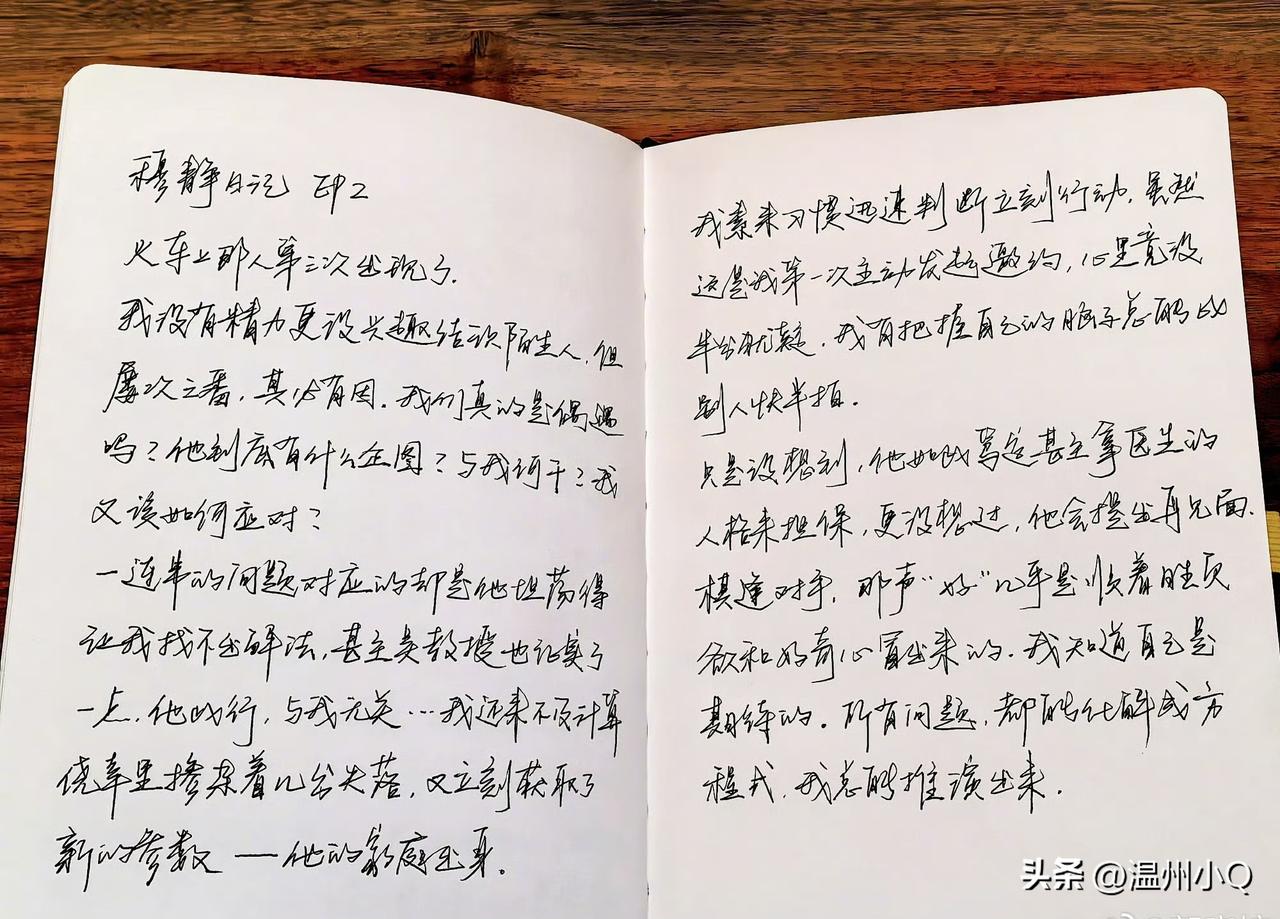 穆静日记 EP2
火车上那人第三次出现了.
我没有精力更没兴趣结识陌生人,但
屡次三番,其必有因.我们真的是偶遇
吗?他到底有什么企图?与我何干?我
又该如何应对?
一连串的问题对应的却是他坦荡得
让我找不出解法,甚至吴教授也证实了
一点,他此行,与我无关…我还来不及计算
侥幸里掺杂着几分失落,又立刻获取了
新的参数——他的家庭出身.
我素来习惯迅速判断立刻行动.虽然
这是我第一次主动发起邀约,心里竟没
半分犹疑.我有把握自己的脑子总能比
别人快半拍.
只是没想到,他如此笃定甚至拿医生的
人格来担保,更没想过,他会提出再见面.
棋逢对手.那声“好”几乎是顺着胜负
欲和好奇心冒出来的.我知道自己是
期待的.所有问题,都能化解成方
程式,我总能推演出来.
头条 @温州小Q